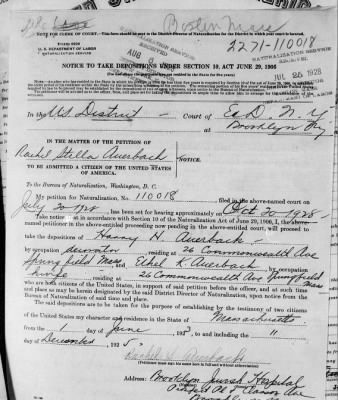 Boston Mass
NOTE FOR CLERK OF COURT.—This form should be sent to the District Director of Naturalization for the District in which your court is
U. S. DEPARTMENT OF LABOR
NATURALIZATION SERVICE
2271-110018
NATURALIZATION SERVICE
RECEIVED
JUL 25 1928
NOTICE TO TAKE DEPOSITIONS UNDER SECTION 10, ACT JUNE 29, 1906
In the U.S. District Court of E. D. N. Y
at Brooklyn Ny
IN THE MATTER OF THE PETITION OF
Rachel Stella Auerbach
NOTICE.
TO BE ADMITTED A CITIZEN OF THE UNITED STATES
OF AMERICA.
To the Bureau of Naturalization, Washington, D. C.
My petition for Naturalization, No. 110018 filed in the above-named court on
July 20 1928 has been set for hearing approximately on Oct 30 1928
Take notice that in accordance with Section 10 of the Naturalization Act of June 29, 1906, I, the above-named
petitioner in the above-entitled proceeding now pending in the above-entitled court, will proceed to
take the depositions of Harry H. Auerbach
by occupation decorator residing at 26 Commonwealth Ave
Springfield Mass and Ethel K Auerbach, by occupation
hwife, residing at 26 Commonwealth Ave Springfield Mass
who are both citizens of the United States, in support of said petition before the officer, and at such time
and place as may be herein designated by the said District Director of Naturalization, upon notice from the
Bureau of Naturalization of said time and place.
The said depositions are to be taken for the purpose of establishing by the testimony of two citizens
of the United States my character and residence in the State of Massachusetts
from the 1 day of June, 1923, to and including the 11
day of December, 1925.
Rachel S. Auerbach
(Petitioner must sign his name here in full and without abbreviation)
Address: Brooklyn Jewish Hospital